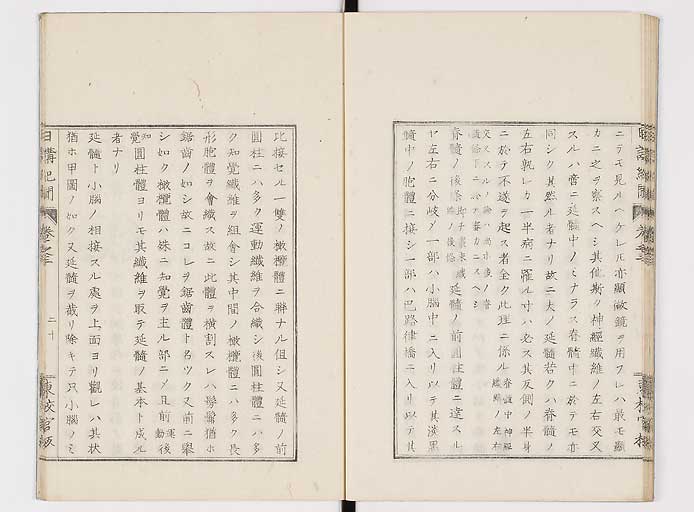 ニテモ見ルヘケレ𪜈亦顯微鏡ヲ用フレハ最モ顯
カニ之ヲ察スヘシ其他斯ク神經纖維ノ左右交叉
スルハ啻ニ延髓中ノミナラス脊髓中ニ於テモ亦
同シク其然ル者ナリ故ニ夫ノ延髓若クハ脊髓ノ
左右孰レカ一半病ニ罹ル寸ハ必ス其反側ノ半身
ニ於テ不遂ヲ起ス者全ク此理ニ係ル
脊髓中神經
纖維ノ左右
脊髓ノ後條
延髓ノ前圓柱體ニ達スル
ヤ左右ニ分岐ノ一部ハ小腦中ニ入リ以テ其淡黑
髓中ノ胞體ニ接シ一部ハ巴路律橋ニ入リ以テ其
比接セル一雙ノ橄欖體ニ聯ナル但シ又延髓ノ前
圓柱ニハ多ク運動纖維ヲ合織シ後圓柱體ニハ多
ク知覺纖維ヲ組會シ其中間ノ橄欖體ニハ多ク長
形胞體ヲ會織ス故ニ此體ヲ横割スレハ擧皆猶ホ
鋸齒ノ如シ故ニコレヲ鋸齒體ト名ツク又前ニ擧
シ如ク橄欖體ハ殊ニ知覺ヲ主ル部ニノ且前
運
動
後
知
覺
圓柱體ヨリモ其纖維ヲ取テ延髓ノ基本ト成ル
者ナリ
延髓ト小腦ノ相接スル處ヲ上面ヨリ觀レハ其状
猶ホ甲圖ノ如ク又延髓ヲ截リ除キテ只小腦ノミ
日講記聞
卷之三
二十
東校官版